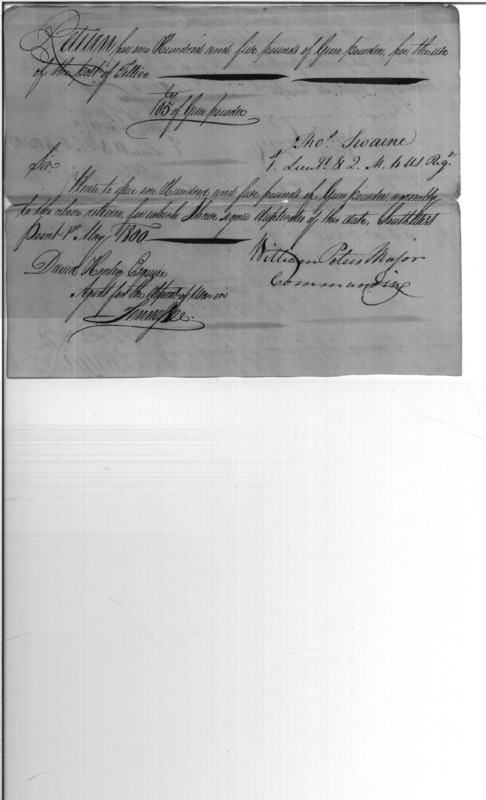 Return for one Hundred and five pounds of Gun powder, for the use
of the Post of Tellico
lb
105 of Gun powder
Thos. Swaine
1. Lieut. & 2. M. 4 US. Regt.
Sir,
Please to issue one Hundred and five pounds of Gun Powder, agreeably
to the above return, for which I have signed duplicates of this date, South West
Point 1st May 1800
William Peters Major
Commanding
David Henley Esquire
Agent for the Department of War in
Tennessee